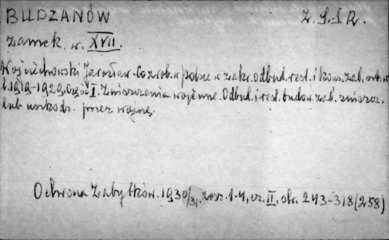 BUDZANÓW Z.S.S.R.
zamek, w. XVII.
Wojciechowski Jarosław. Co zrob. w Polsce w zakr. odbud. rest. i kons. zab.
l. 1919-1929. Część I. Zniszczenia wojenne. Odbud. i rest. budow. zab. zniszcz.
lub uszkodz. przez wojnę.
Ochrona Zabytków. 1930/31, zesz. 1-4, cz. II, str. 243-318 (258)